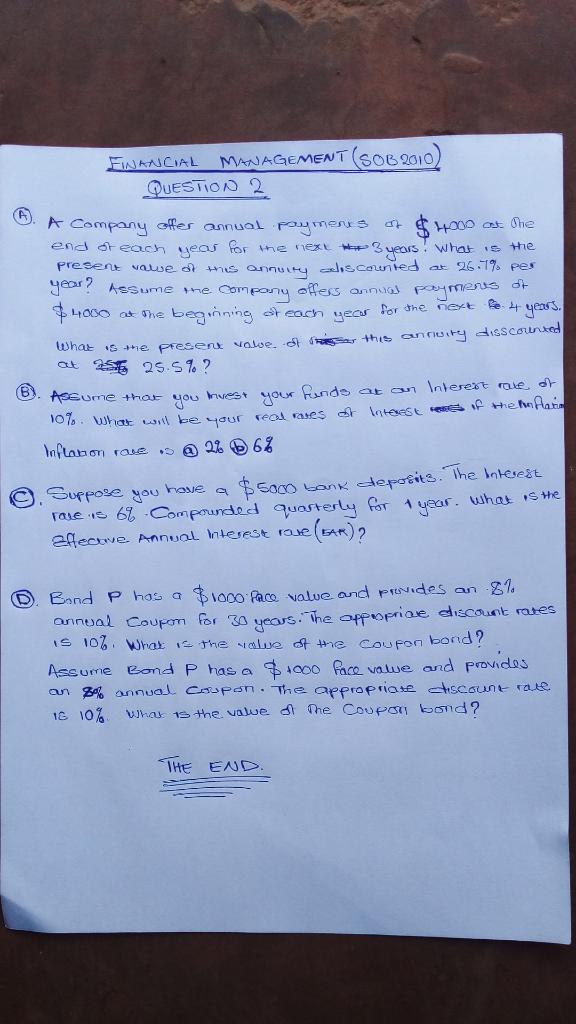 FINANCIAL MANAGEMENT (SOB 2010)
QUESTION 2
(A). A Company offer annual payments of $4000 at the
end of each year for the next 3 years. What is the
present value of this annuity discounted at 26.7% per
year? Assume the company offers annual payments of
$4000 at the beginning of each year for the next 4 years.
What is the present value of this annuity disscounted
at 25.5%?
(B). Assume that you Invest your funds at an Interest rate of
10%. What will be your real rates of Interest if the Inflation
Inflation rate is (a) 2% (b) 6%
(C). Suppose you have a $5000 bank deposits. The Interest
rate is 6%. Compounded quarterly for 1 year. What is the
Effective Annual Interest rate (EAR)?
(D). Bond P has a $1000 face value and provides an 8%
annual coupon for 30 years. The appropriate discount rates
is 10%. What is the value of the coupon bond?
Assume Bond P has a $1000 face value and provides
an 8% annual coupon. The appropriate discount rate
is 10%. What is the value of the Coupon bond?
THE END.